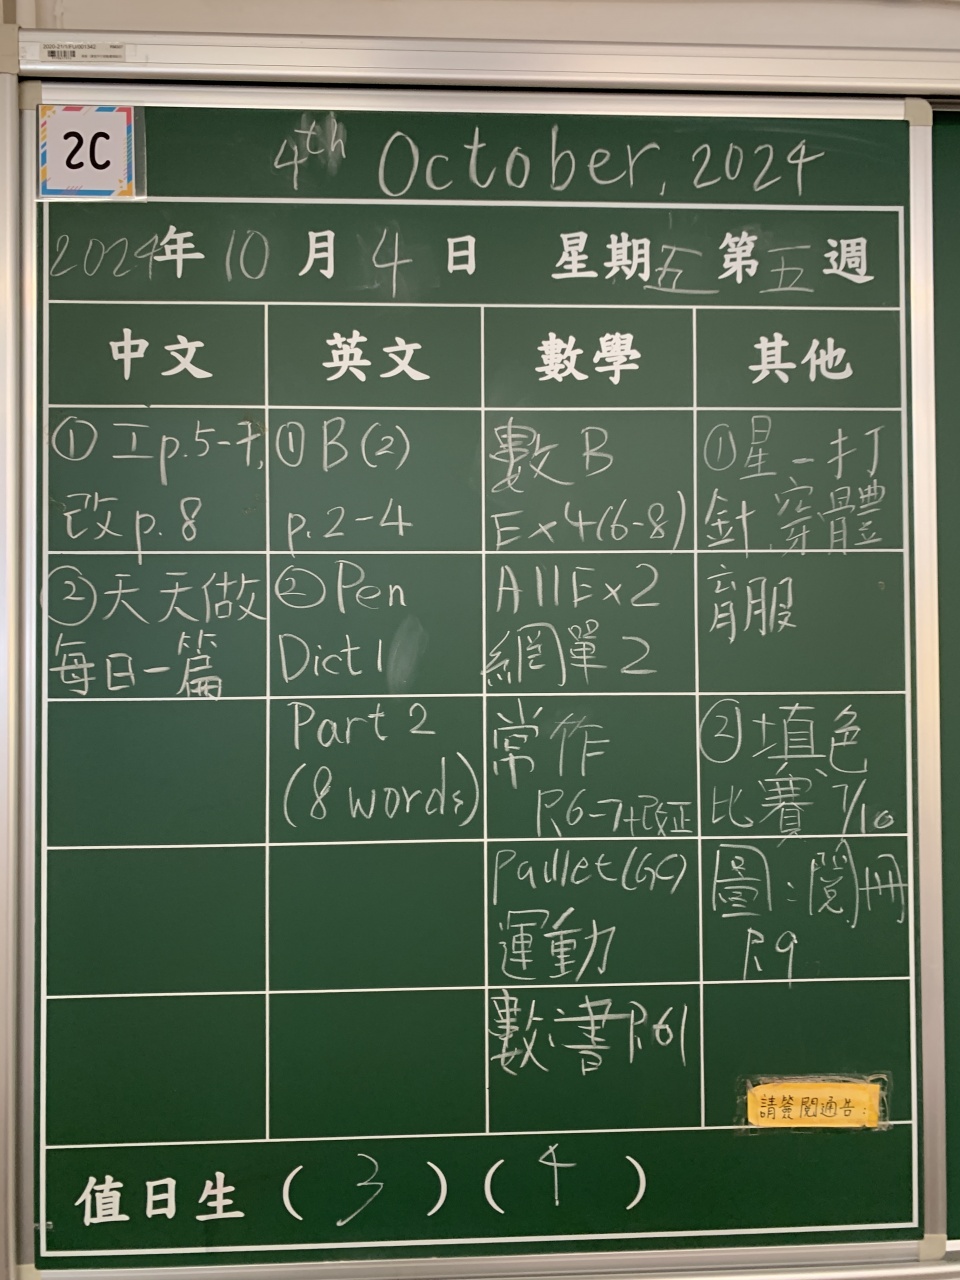 2C
4th October, 2024
2024年10月4日 星期五第五週
中文
英文
數學
其他
①工p.5-7,
改p.8
②天天做
每日一篇
①B(2)
p.2-4
②Pen
Dict 1
Part 2
(8 words)
數B
Ex4(6-8)
AllEx2
網單2
常作
P.6-7+改正
Paullet(GC)
運動
數:書P.61
①星一打
針,穿體
育服
②填色
比賽 7/10
圖:閱冊
P.9
請簽閱通告.
值日生(3)(4)